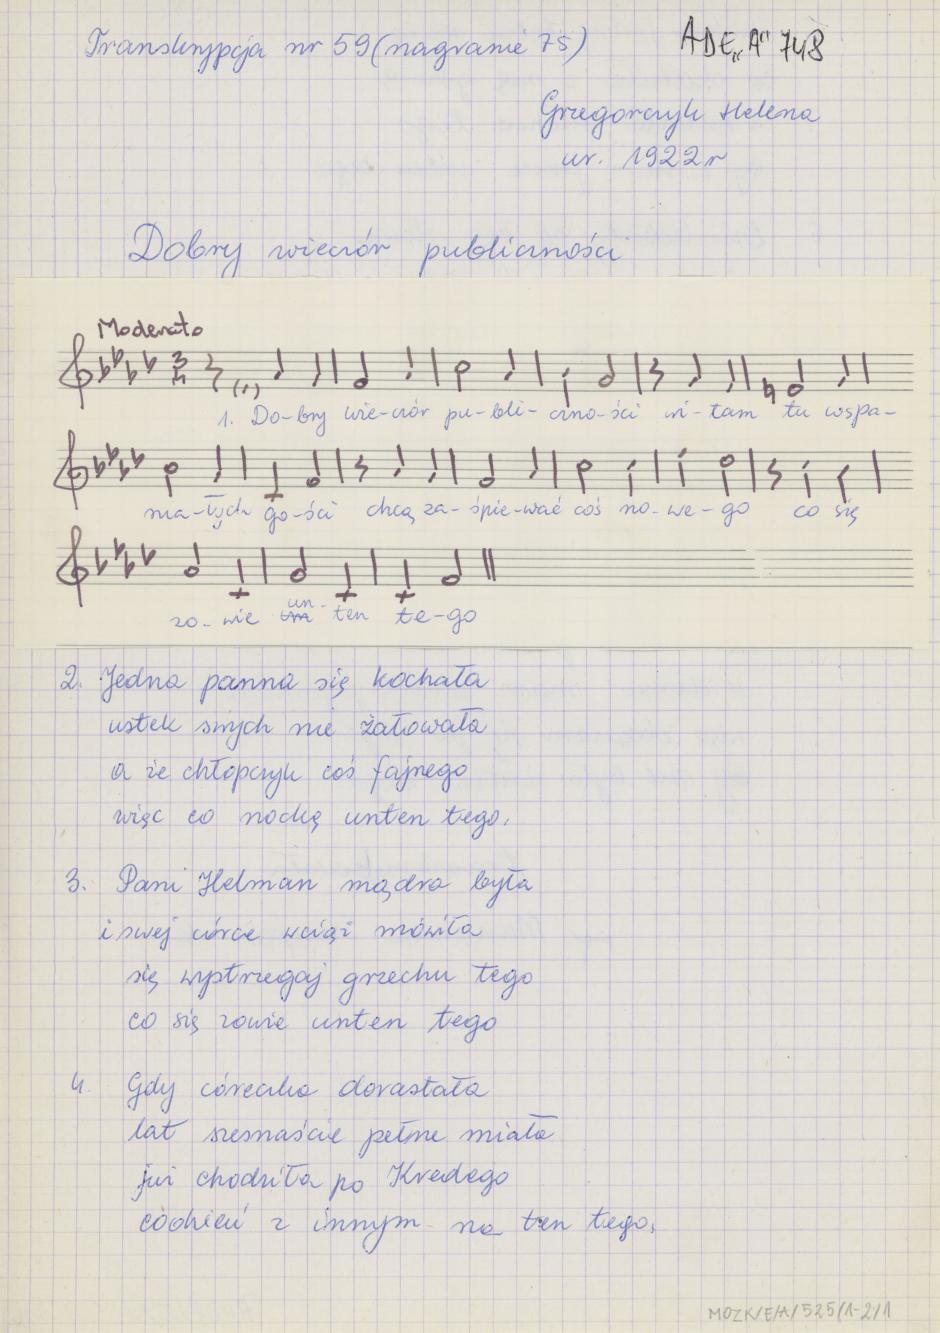 Transkrypcja nr 59 (nagranie 75)
ADE „A" 748
Grzegorczyk Helena
ur. 1922 r
Dobry wieczór publiczności
Moderato
1. Do-bry wie-czór pu-bli-czno-ści wi-tam tu wspa-
nia-łych go-ści chcą za-śpie-wać coś no-we-go co się
zo-wie un-ten te-go
2. Jedna panna się kochała
ustek swych nie żałowała
a że chłopczyk coś fajnego
więc co nocką unten tego.
3. Pani Helman mądra była
i swej córce wciąż mówiła
się wystrzegaj grzechu tego
co się zowie unten tego
4. Gdy córeczka dorastała
lat szesnaście pełne miała
już chodziła po Kredego
codzień z innym na ten tego.
MOZK/E/A/525/1-2/1